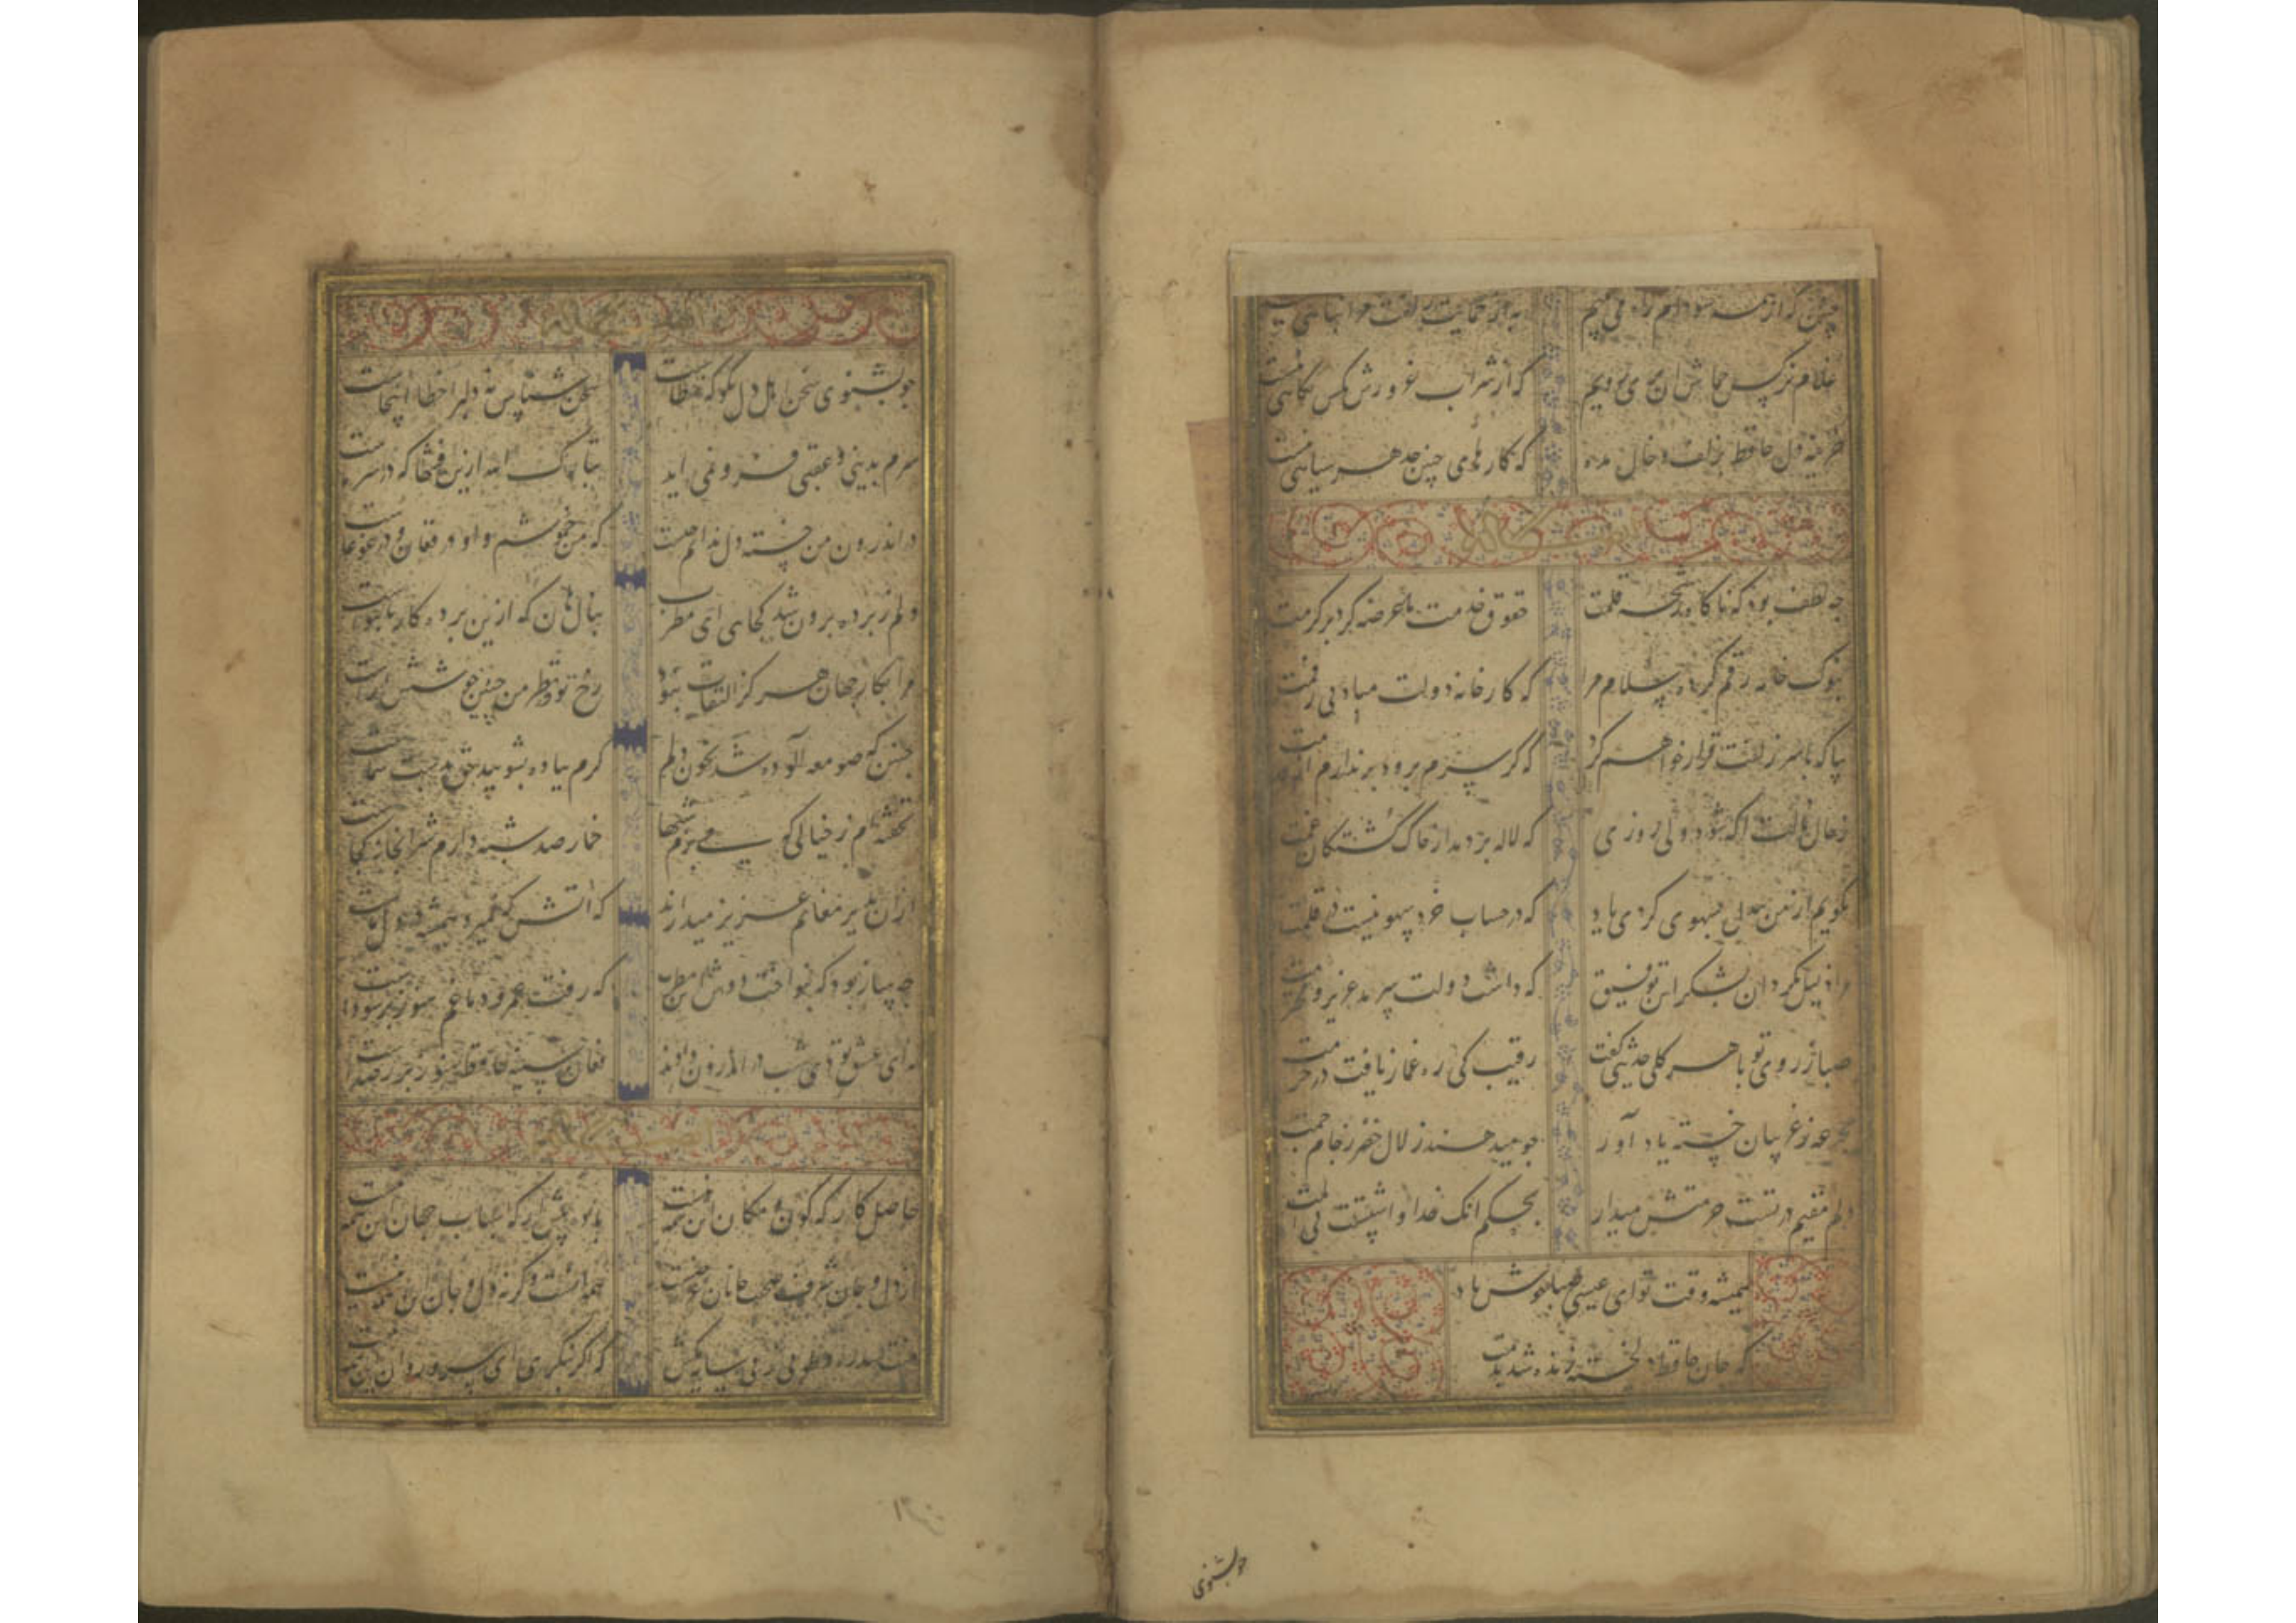 چنین که از همه سو دام راه می بینم به از حمایت زلفت مرا پناهی نیست
غلام نرکس جماش آن سهی سرویم که از شراب غرورش بکس نکاهی نیست
خزینه دل حافظ بزلف و خال مده که کارهای چنین حد هر سیاهی نیست
چه لطف بود که ناکاه رشحه قلمت حقوق خدمت ما عرضه کرد بر کرمت
بنوک خامه رقم کرده سلام مرا که کارخانه دولت مباد بی رقمت
بیا که با سر زلفت قرار خواهم کرد که کر سرم برود بر ندارم از قدمت
ز حال ما دلت اکه شود ولی روزی که لاله بر دمد از خاک کشتکان غمت
نکویم از من بیدل بسهوی کردی یاد که در حساب خرد سهو نیست بر قلمت
مرا ذلیل مکردان بشکر این توفیق که داشت دولت سرمد عزیز و محترمت
صبا ز روی تو با هر کلی حدیثی کفت رقیب کی ره غماز یافت در حرمت
ز غریبان خسته یاد آور چو میدهند زلال خضر ز جام جمت
دلم مقیم در تست حرمتش میدار بحکم انک خدا داشتست
همیشه وقت تو ای عیسی صبا خوش باد
که جان حافظ دلخسته زنده شد بدمت
چو بشنوی
چو بشنوی سخن اهل دل مکو که خطاست سخن شناس نه دلبرا خطا اینجاست
سرم بدینی و عقبی فرو نمی اید تبارک الله ازین فتنها که در سر ماست
در اندرون من خسته دل ندانم چیست که من خموشم و او در فغان و در غوغاست
دلم ز پرده برون شد کجایی ای مطرب بنال هان که ازین پرده کار ما بنواست
مرا بکار جهان هرکز التفات نبود رخ تو در نظر من چنین خوشش اراست
چنین که صومعه آلوده شد بخون دلم کرم بباده بشویید حق بدست شماست
نخفته ام ز خیالی که می پزم شبها خمار صد شبه دارم شرابخانه کجاست
از ان بدیر مغانم عزیز میدارند که اتشی که نمیرد همیشه در دل ماست
چه ساز بود که بنواخت دوش این مطرب که رفت عمر و دماغم هنوز پر سوداست
ندای عشق تو دی شب در اندرون دادند فغان سینه حافظ هنوز پر ز صداست
حاصل کارکه کون و مکان این همه نیست باده پیش ار که اسباب جهان این همه نیست
از دل و جان شرف صحبت جانان غرضست همه انست وکرنه دل و جان این همه نیست
منت سدره و طوبی ز پی سایه مکش که اکر بنکری ای سرو روان این همه نیست